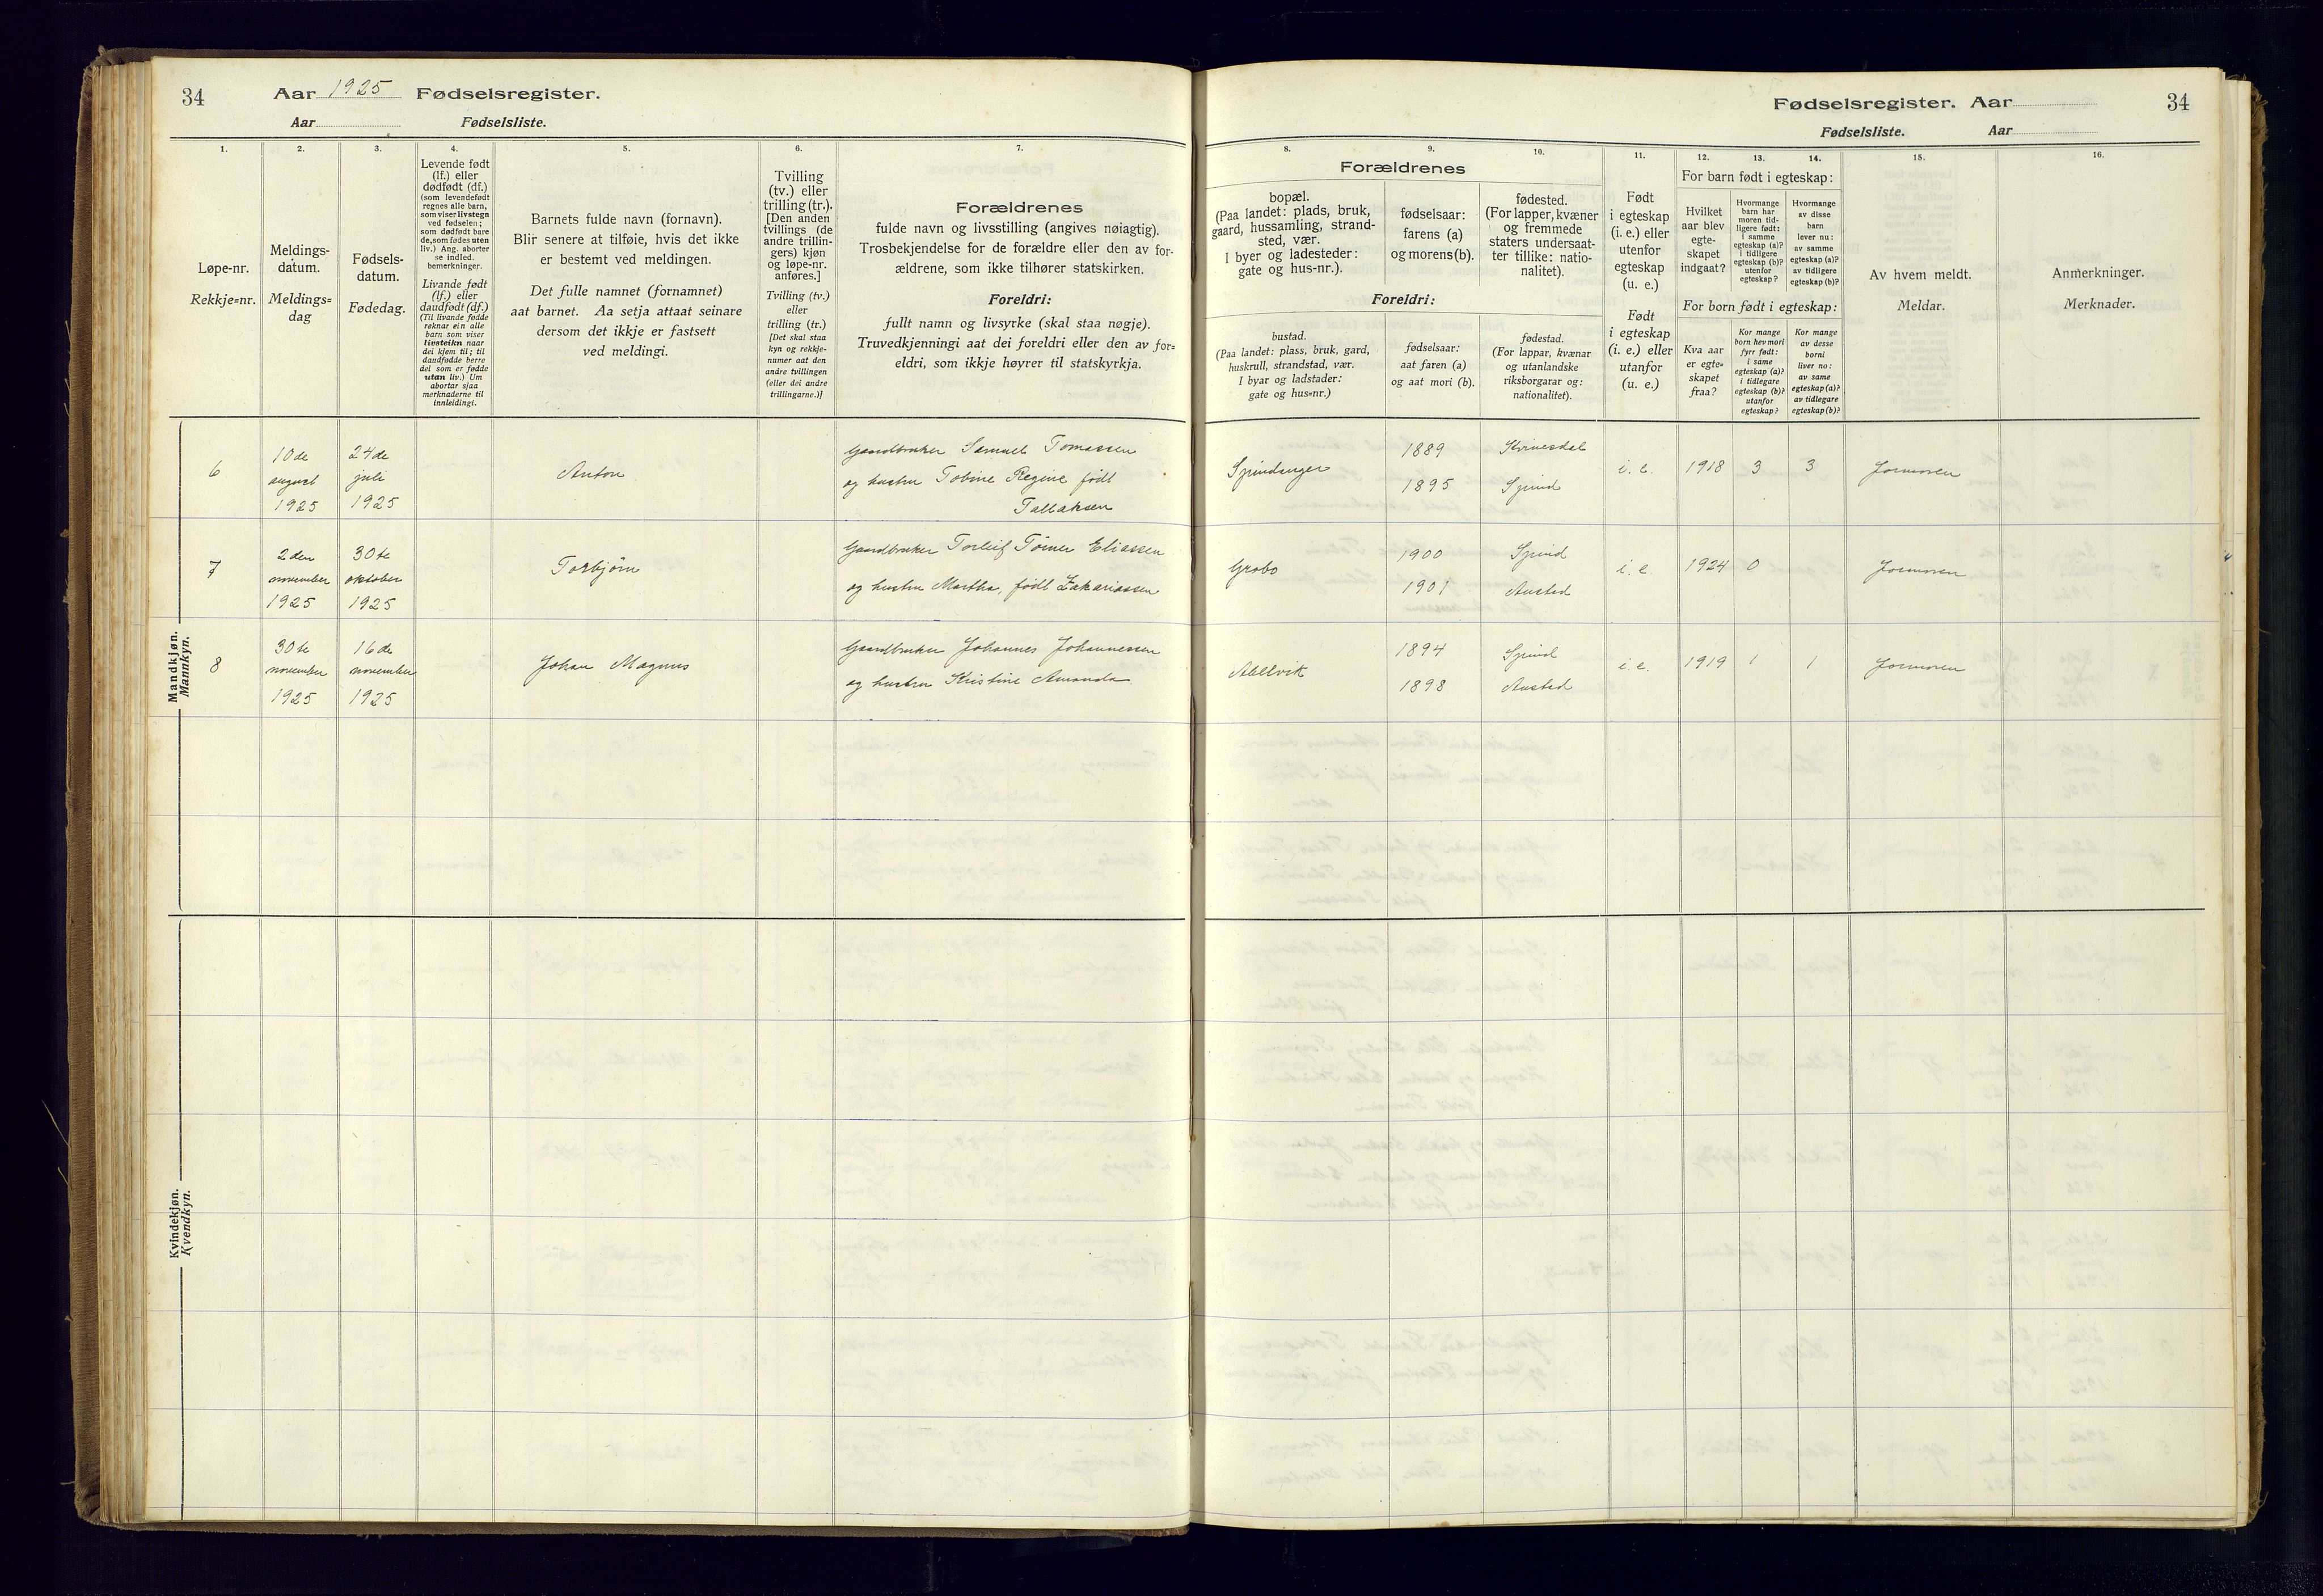 34
Aar 1925 Fødselsregister.
Aar Fødselsliste.
1. 2. 3. 4. 5. 6. 7.
Løpe-nr.
Rekkje=nr.
Meldings-
datum.
Meldings=
dag
Fødsels-
datum.
Fødedag.
Levende født
(lf.) eller
dødfødt (df.)
(som levendefødt
regnes alle barn,
som viser livstegn
ved fødselen;
som dødfødt bare
de, som fødes uten
liv.) Ang. aborter
se indled.
bemerkninger.
Livande født
(lf.) eller
daudfødt (df.)
(Til livande fødde
reknar ein alle
barn som viser
livsteikn naar
dei kjem til; til
daudfødde berre
dei som er fødde
utan liv.) Um
abortar sjaa
merknaderne til
innleidingi.
Barnets fulde navn (fornavn).
Blir senere at tilføie, hvis det ikke
er bestemt ved meldingen.
Det fulle namnet (fornamnet)
aat barnet. Aa setja attaat seinare
dersom det ikkje er fastsett
ved meldingi.
Tvilling
(tv.) eller
trilling (tr.).
[Den anden
tvillings (de
andre trillin-
gers) kjøn
og løpe-nr.
anføres.]
Tvilling (tv.)
eller
trilling (tr.)
[Det skal staa
kyn og rekkje-
numer aat den
andre tvillingen
(eller dei andre
trillingarne.)]
Forældrenes
fulde navn og livsstilling (angives nøiagtig).
Trosbekjendelse for de forældre eller den av for-
ældrene, som ikke tilhører statskirken.
Foreldri:
fullt namn og livsyrke (skal staa nøgje).
Truvedkjenningi aat dei foreldri eller den av for=
eldri, som ikkje høyrer til statskyrkja.
Mandkjøn.
Mannkyn.
6
10de
august
1925
24de
juli
1925
Anton
Gaardbruker Samuel Tomassen
og hustru Tobine Regine født
Tallaksen
7
2den
november
1925
30te
oktober
1925
Torbjørn
Gaardbruker Torleif Tømer Eliassen
og hustru Martha, født Zakariassen
8
30te
november
1925
16de
november
1925
Johan Magnus
Gaardbruker Johannes Johannessen
og hustru Kristine Amanda
Kvindekjøn.
Kvendkyn.
Fødselsregister. Aar 34
Fødselsliste. Aar
8. 9. 10. 11. 12. 13. 14. 15. 16.
Forældrenes
bopæl.
(Paa landet: plads, bruk,
gaard, hussamling, strand-
sted, vær.
I byer og ladesteder:
gate og hus-nr.).
fødselsaar:
farens (a)
og morens (b).
fødested.
(For lapper, kvæner
og fremmede
staters undersaat-
ter tillike: natio-
nalitet).
Foreldri:
bustad.
(Paa landet: plass, bruk, gard,
huskrull, strandstad, vær.
I byar og ladstader:
gate og hus=nr.)
fødselsaar:
aat faren (a)
og aat mori (b).
fødestad.
(For lappar, kvænar
og utanlandske
riksborgarar og:
nationalitet).
Født
i egteskap
(i. e.) eller
utenfor
egteskap
(u. e.)
Født
i egteskap
(i. e.) eller
utanfor
(u. e.)
For barn født i egteskap:
Hvilket
aar blev
egte-
skapet
indgaat?
Hvormange
barn har
moren tid-
ligere født:
i samme
egteskap (a)?
i tidligere
egteskap (b)?
utenfor
egteskap?
Hvormange
av disse
barn
lever nu:
av samme
egteskap (a)?
av tidligere
egteskap (b)?
For born født i egteskap:
Kva aar
er egte=
skapet
fraa?
Kor mange
born hev mori
fyrr født:
i same
egteskap (a)?
i tidlegare
egteskap (b)?
utanfor
egteskap?
Kor mange
av desse
borni
liver no:
av same
egteskap (a)?
av tidlegare
egteskap (b)?
Av hvem meldt.
Meldar.
Anmerkninger.
Merknader.
Spindanger
1889
1895
Kvinesdal
Spind
i. e. 1918 3 3 Jormoren
Grobo
1900
1901
Spind
Austad
i. e. 1924 0 Jormoren
Abelvik
1894
1898
Spind
Austad
i e. 1919 1 1 Jormoren